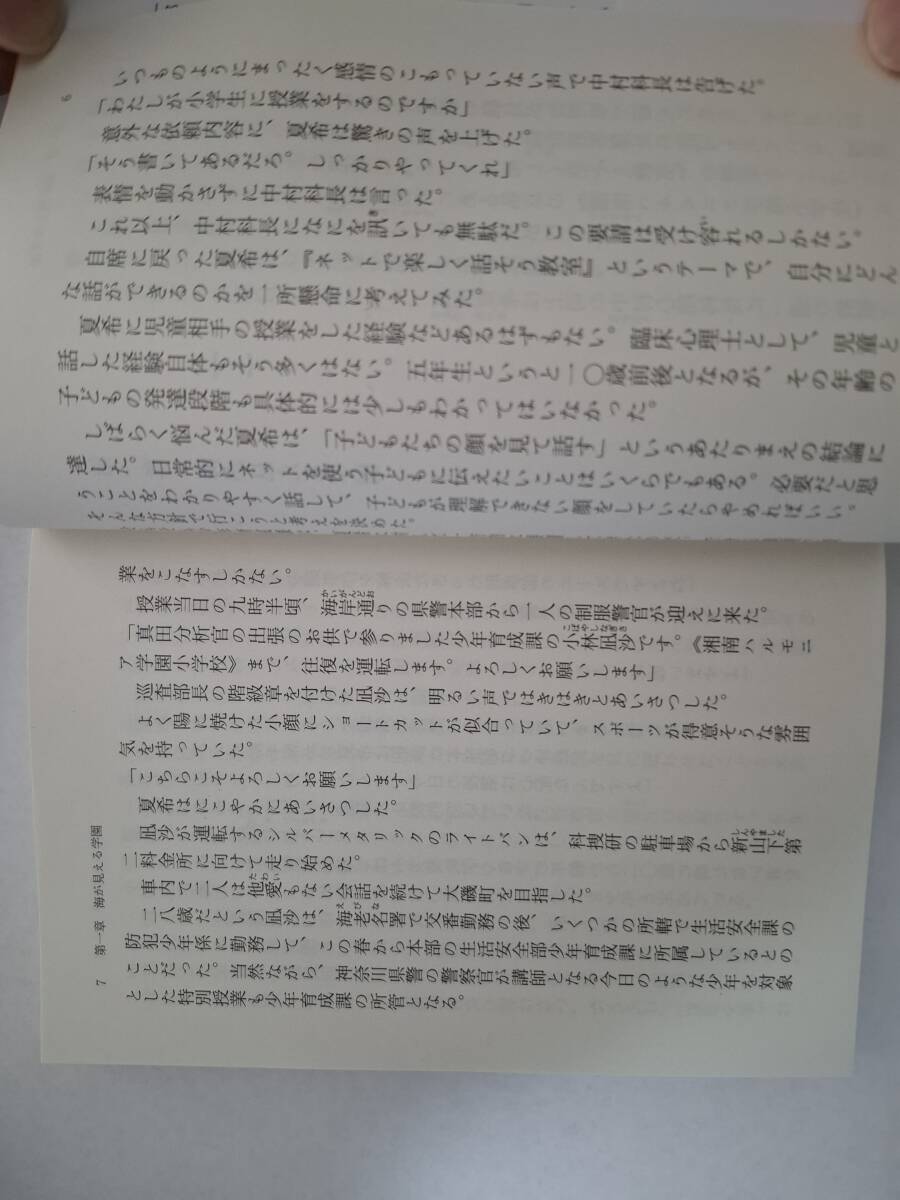 6
いつものようにまったく感情のこもっていない声で中村科長は告げた。
「わたしが小学生に授業をするのですか」
意外な依頼内容に、夏希は驚きの声を上げた。
「そう書いてあるだろ。しっかりやってくれ」
表情を動かさずに中村科長は言った。
これ以上、中村科長になにを訊いても無駄だ。この要請は受け容れるしかない。
自席に戻った夏希は、『ネットで楽しく話そう教室』というテーマで、自分にどん
な話ができるのかを一所懸命に考えてみた。
夏希に児童相手の授業をした経験などあるはずもない。臨床心理士として、児童と
話した経験自体もそう多くはない。五年生というと一〇歳前後となるが、その年齢の
子どもの発達段階も具体的には少しもわかってはいなかった。
しばらく悩んだ夏希は、「子どもたちの顔を見て話す」というあたりまえの結論に
達した。日常的にネットを使う子どもに伝えたいことはいくらでもある。必要だと思
うことをわかりやすく話して、子どもが理解できない顔をしていたらやめればいい。
そんな方針で行こうと考えを決めた。
7 第一章 海が見える学園
業をこなすしかない。
授業当日の九時半頃、海岸通りの県警本部から一人の制服警官が迎えに来た。
「真田分析官の出張のお供で参りました少年育成課の小林凪沙です。《湘南ハルモニ
ア学園小学校》まで、往復を運転します。よろしくお願いします」
巡査部長の階級章を付けた凪沙は、明るい声ではきはきとあいさつした。
よく陽に焼けた小顔にショートカットが似合っていて、スポーツが得意そうな雰囲
気を持っていた。
「こちらこそよろしくお願いします」
夏希はにこやかにあいさつした。
凪沙が運転するシルバーメタリックのライトバンは、科捜研の駐車場から新山下第
二料金所に向けて走り始めた。
車内で二人は他愛もない会話を続けて大磯町を目指した。
二八歳だという凪沙は、海老名署で交番勤務の後、いくつかの所轄で生活安全課の
防犯少年係に勤務して、この春から本部の生活安全部少年育成課に所属しているとの
ことだった。当然ながら、神奈川県警の警察官が講師となる今日のような少年を対象
とした特別授業も少年育成課の所管となる。